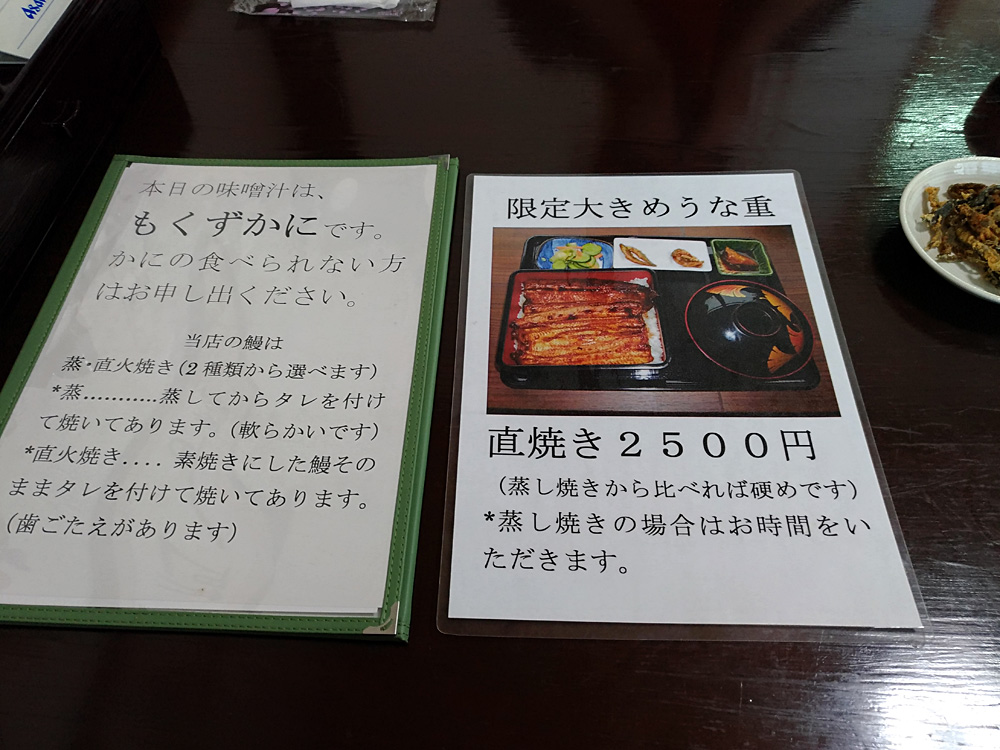 本日の味噌汁は、
もくずかにです。
かにの食べられない方
はお申し出ください。
当店の鰻は
蒸・直火焼き(2種類から選べます)
*蒸...........蒸してからタレを付け
て焼いてあります。(軟らかいです)
*直火焼き.... 素焼きにした鰻その
ままタレを付けて焼いてあります。
(歯ごたえがあります)
限定大きめうな重
直焼き2500円
(蒸し焼きから比べれば硬めです)
*蒸し焼きの場合はお時間をい
ただきます。